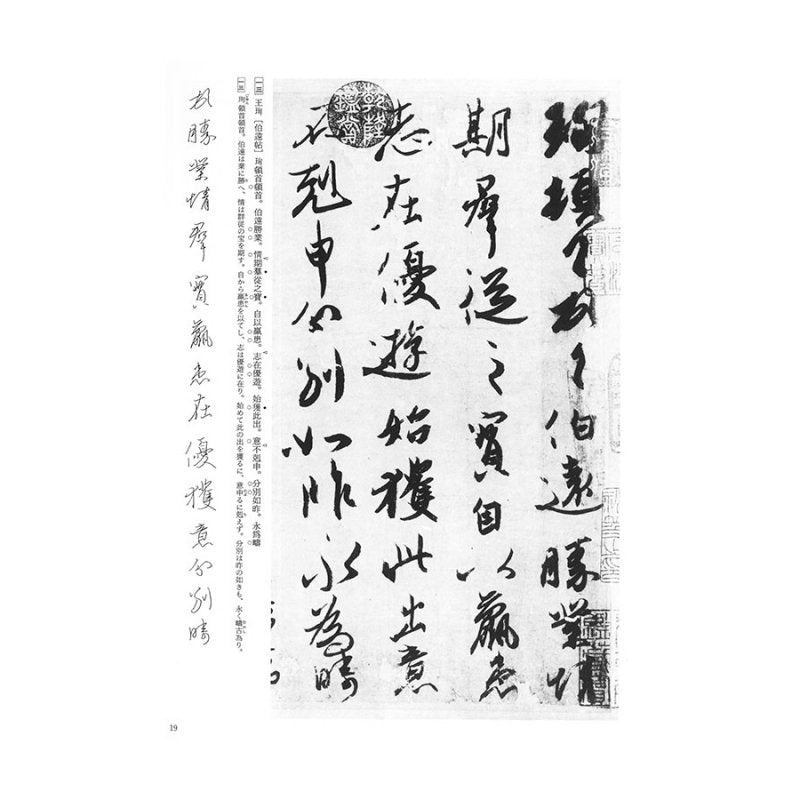 珣頓首頓首伯遠勝業情
期羣從之寶自以羸患
志在優遊始獲此出意
不剋申分別如昨永為疇
一三 王珣［伯遠帖］ 珣頓首頓首。伯遠勝業。情期羣從之寶。自以羸患。志在優遊。始獲此出。意不剋申。分別如昨。永爲疇
一三 珣頓首頓首。伯遠は業に勝へ、情は群従の宝を期す。自から羸患を以てし、志は優遊に在り。始めて此の出を獲るに、意申るに剋えず。分別は昨の如きも、永く疇古為り。
勝業情羣寶羸患在優獲意分別疇
19